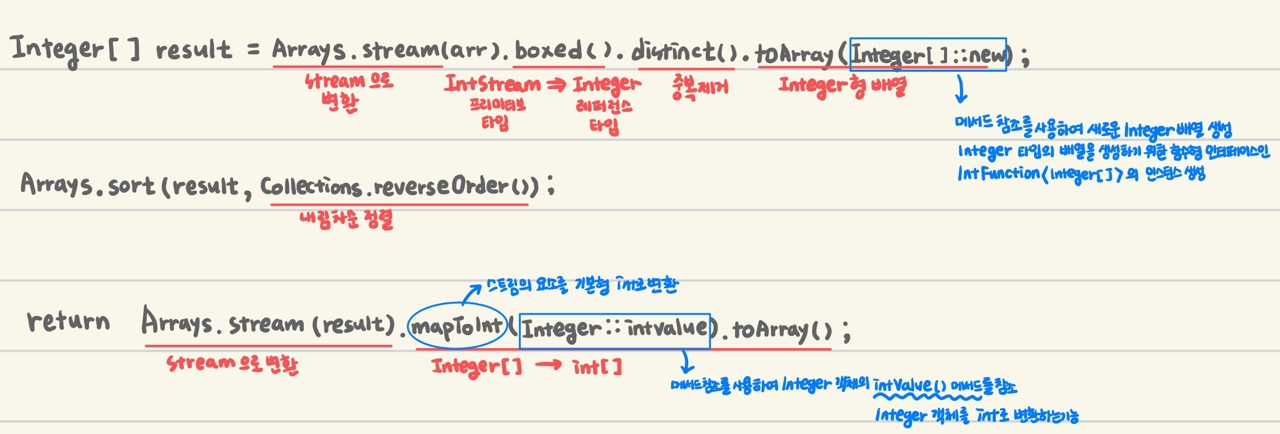 Integer[] result = Arrays.stream(arr).boxed().distinct().toArray(Integer[]::new);
Stream 으로 변환
IntStream ⇒ Integer
프리미티브 타입
레퍼런스 타입
중복제거
Integer형 배열
메서드 참조를 사용하여 새로운 Integer 배열 생성
Integer 타입의 배열을 생성하기 위한 함수형 인터페이스인
IntFunction<Integer[]>의 인스턴스 생성
Arrays.sort(result, Collections.reverseOrder());
내림차순 정렬
스트림의 요소를 기본형 int로 변환
return Arrays.stream(result).mapToInt(Integer::intvalue).toArray();
Stream 으로 변환
Integer[] → int[]
메서드참조를 사용하여 Integer 객체의 intValue() 메서드를 참조
Integer 객체를 int로 변환하는기능